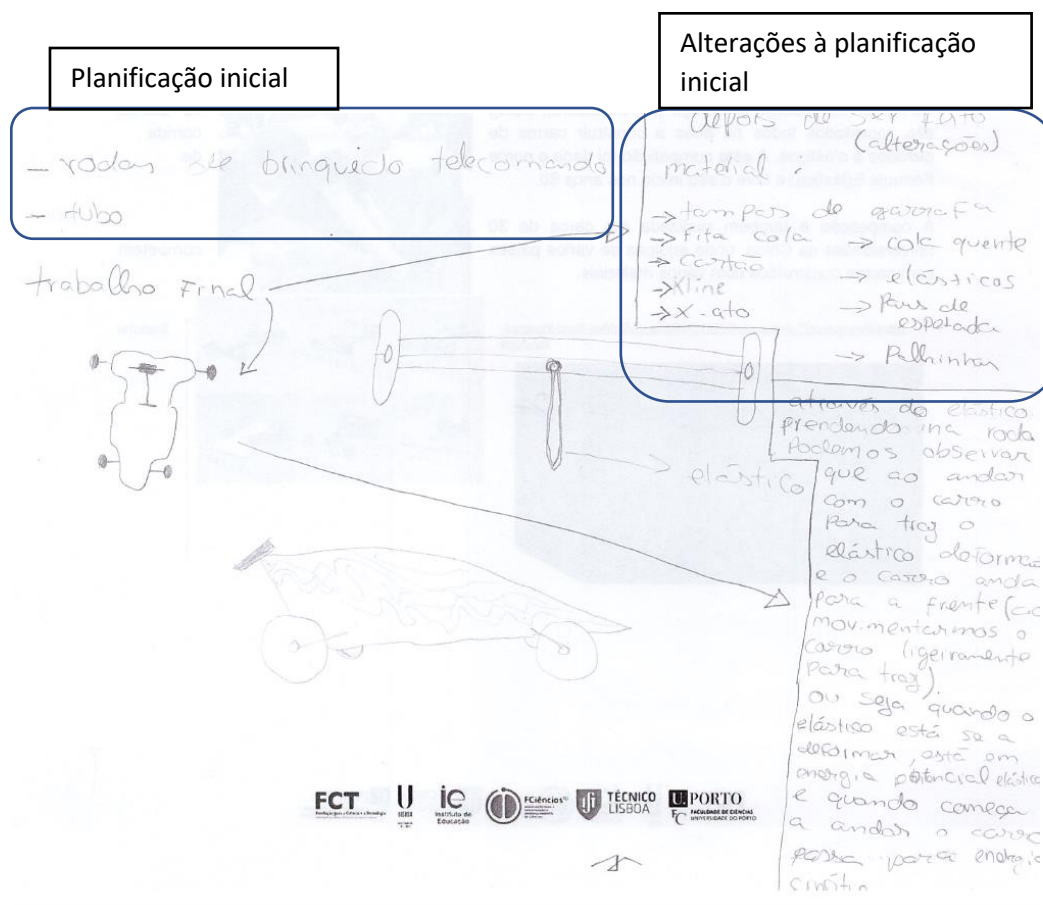 Planificação inicial
Alterações à planificação
inicial
- rodas de brinquedo telecomando
- tubo
trabalho Final
depois de ser feito
(alterações)
material:
→ tampas de garrafa
→ Fita cola
→ Cartão
→ Kline
→ X-ato
→ cola quente
→ elásticos
→ Paus de
espetada
→ Palhinhas
elástico
através do elástico
prendendo na roda
Podemos observar
que ao andar
com o carro
Para traz o
elástico deforma
e o carro anda
para a frente (ao
movimentarmos o
carro ligeiramente
para traz).
ou seja quando o
elástico está se a
deformar, está em
energia potencial elástica
e quando começa
a andar o carro
passa para energia
cinética
FCT
U
LISBOA
ie
Instituto de
Educação
FCiências
TÉCNICO
LISBOA
U.PORTO
FC
FACULDADE DE CIÊNCIAS
UNIVERSIDADE DO PORTO